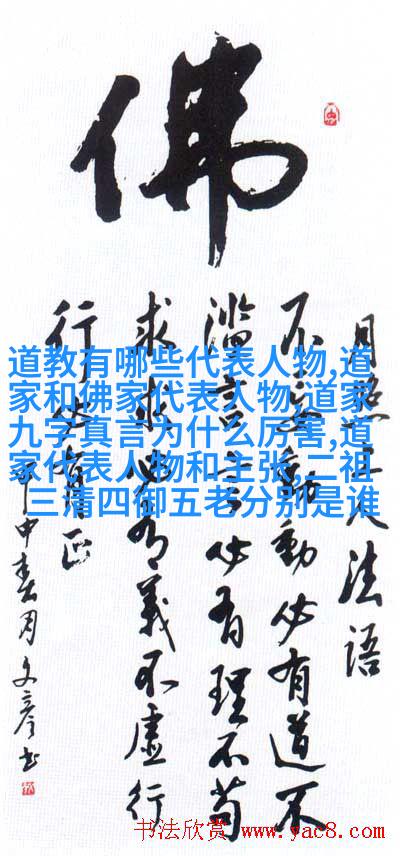 佛
月照上人法語
不妄動動必有道不
濫言言必有理不苟
求求必有義不虛行
行必有正
甲申春月文彦书
道教有哪些代表人物,道
家和佛家代表人物,道家
九字真言为什么厉害,道
家代表人物和主张,二祖
三清四御五老分别是谁
书法欣赏 www.yac8.com